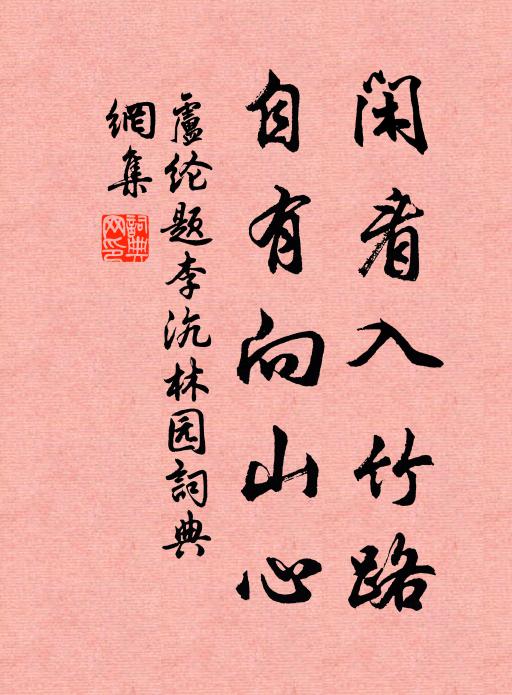 闲看入竹路
自有向山心
盧纶题李沆林园詞典
網集
詞典
网印